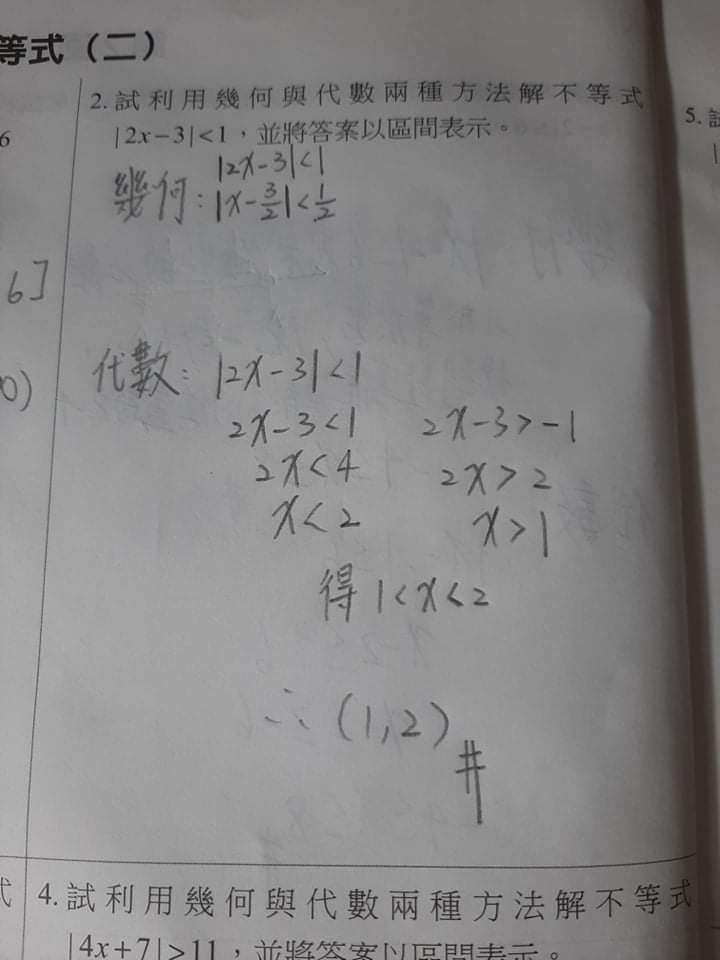 等式（二）
2. 試利用幾何與代數兩種方法解不等式
|2x−3|<1，並將答案以區間表示。
|2x-3|<1
幾何: |x-3/2|<1/2
代數: |2x-3|<1
2x-3<1 2x-3>-1
2x<4 2x>2
x<2 x>1
得 1<x<2
∴ (1,2)
#
6
6]
0)
式
4. 試利用幾何與代數兩種方法解不等式
|4x+7|>11，並將答案以區間表示。
5. 試
|